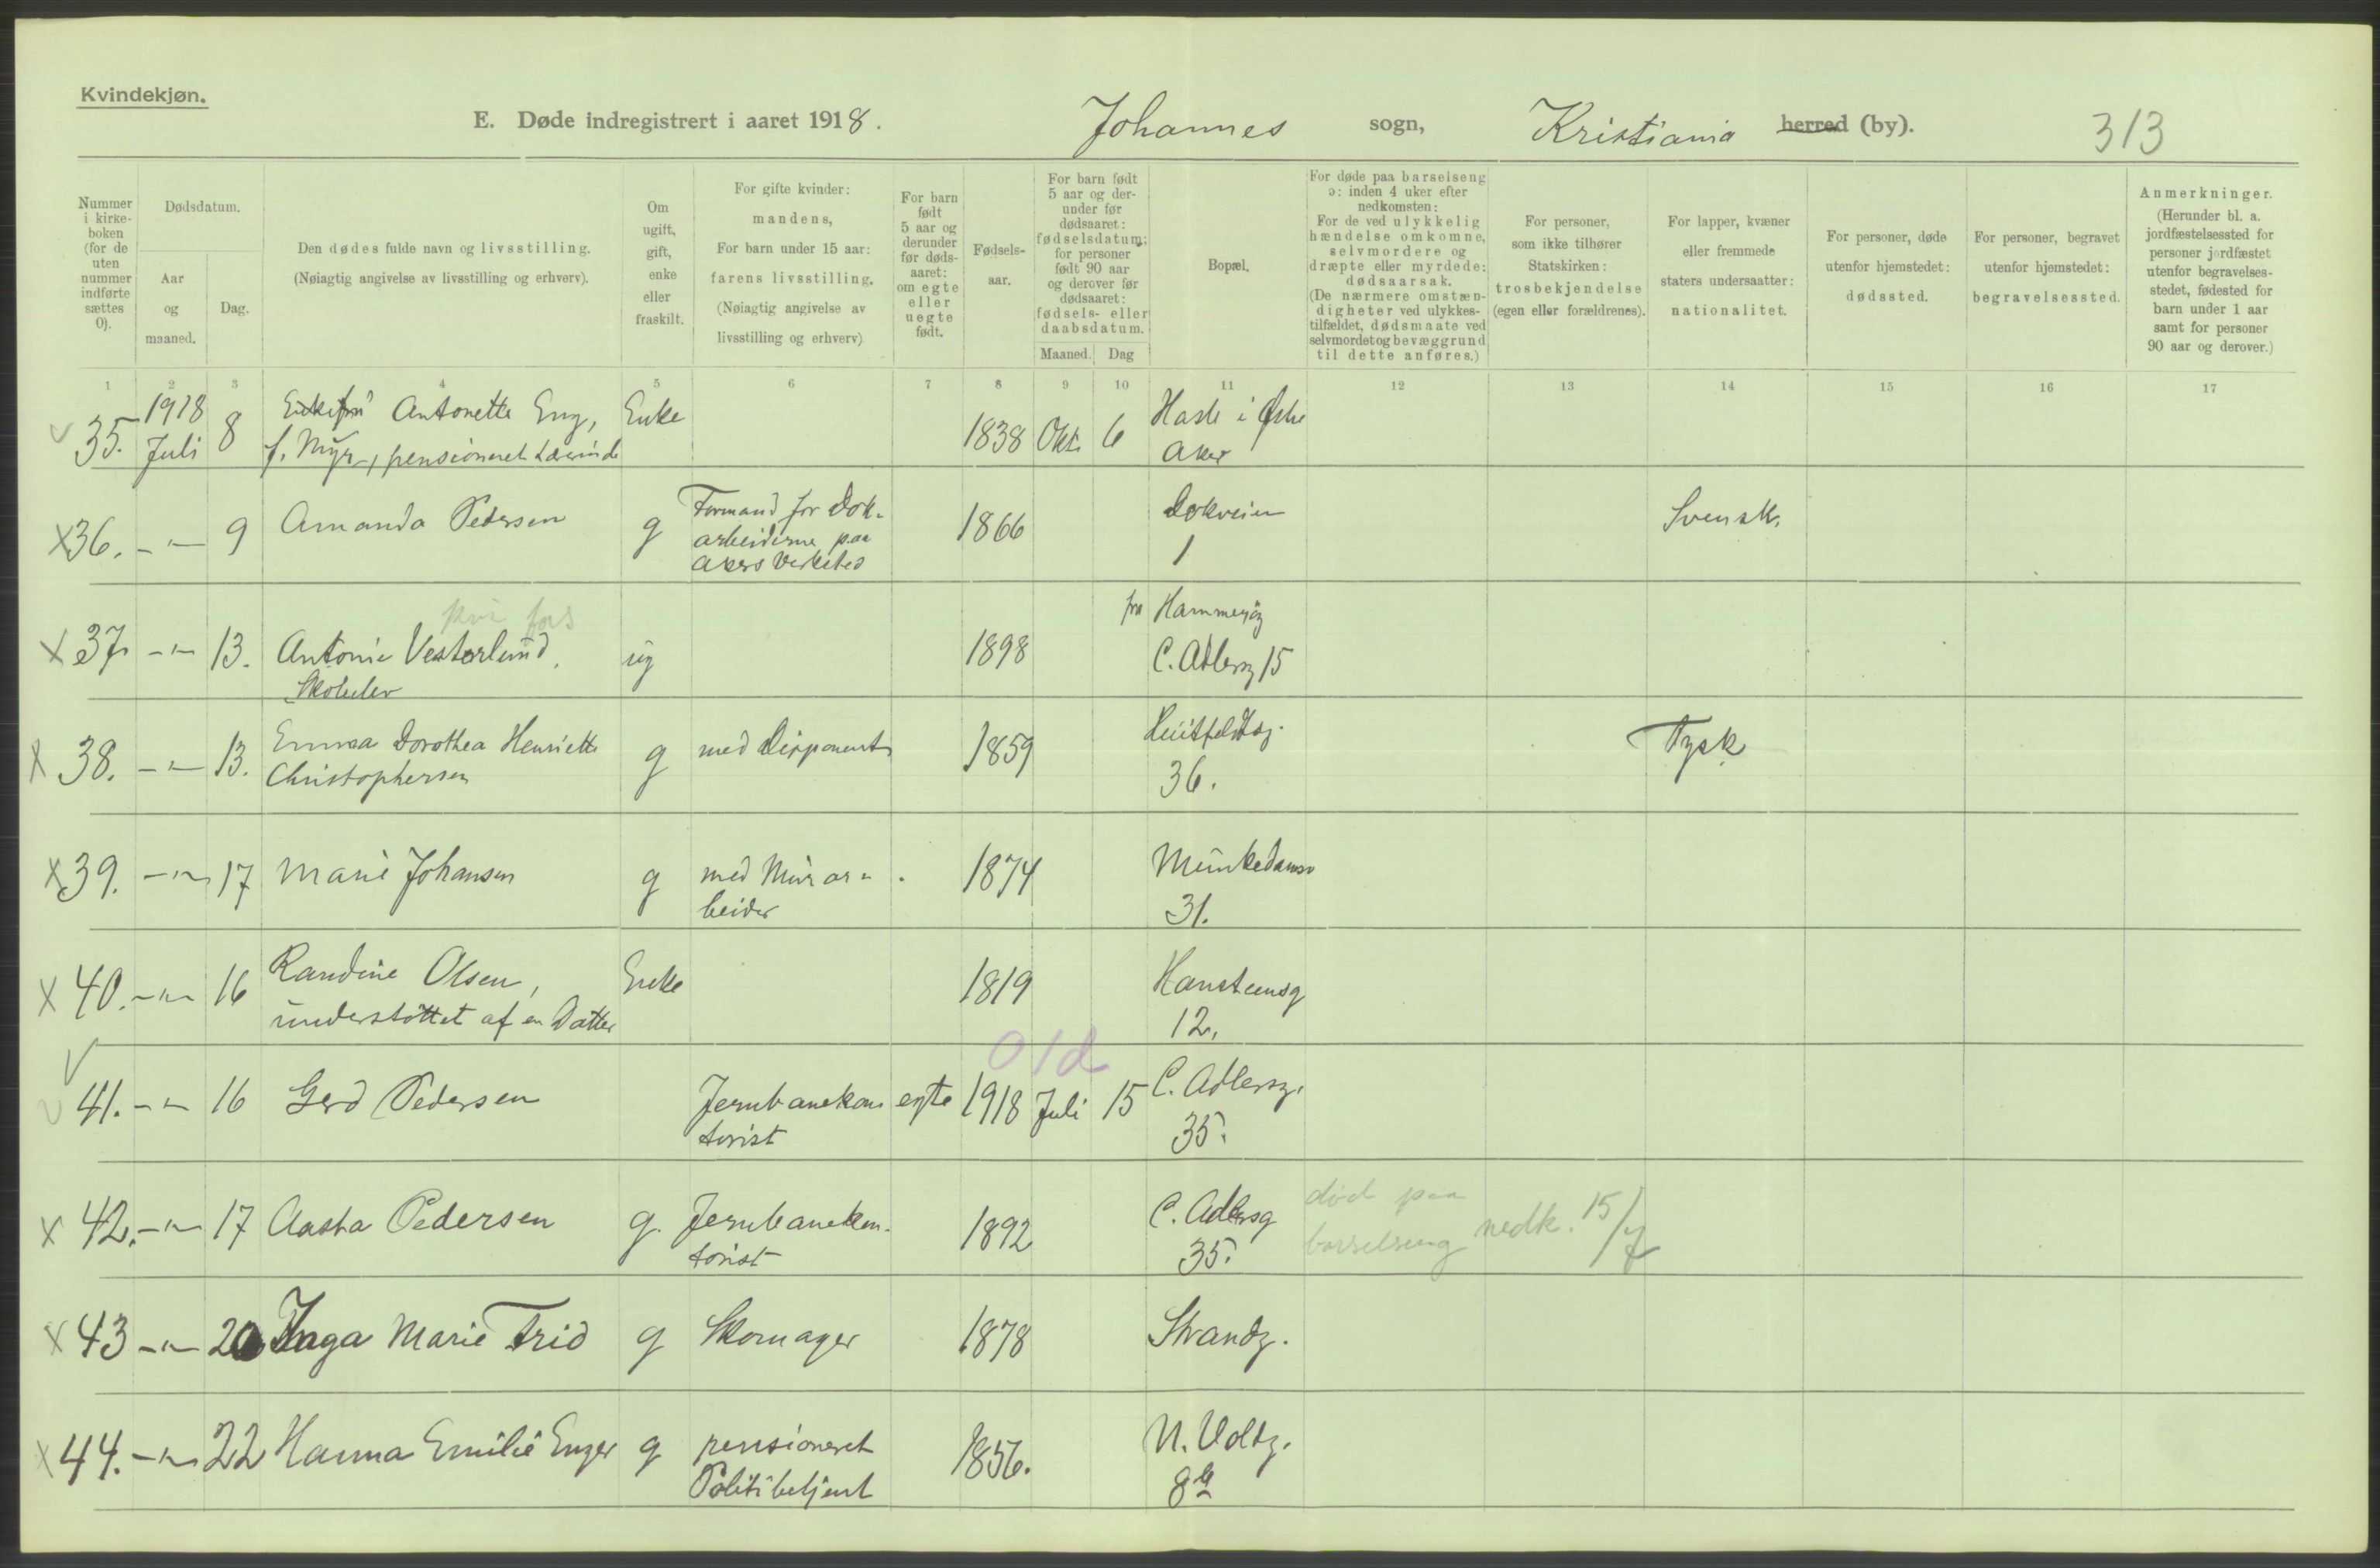 Kvindekjøn.
E. Døde indregistrert i aaret 1918. Johannes sogn, Kristiania herred (by). 313
Nummer i kirke- boken (for de uten nummer indførte sættes 0).
Dødsdatum.
Aar og maaned.
Dag.
Den dødes fulde navn og livsstilling.
(Nøiagtig angivelse av livsstilling og erhverv).
Om ugift, gift, enke eller fraskilt.
For gifte kvinder:
mandens,
For barn under 15 aar:
farens livsstilling.
(Nøiagtig angivelse av
livsstilling og erhverv)
For barn født 5 aar og derunder før døds- aaret: om egte eller uegte født.
Fødsels- aar.
For barn født 5 aar og der- under før dødsaaret: fødselsdatum; for personer født 90 aar og derover før dødsaaret: fødsels- eller daabsdatum.
Maaned. Dag
Bopæl.
For døde paa barselseng
ɔ: inden 4 uker efter
nedkomsten:
For de ved ulykkelig
hændelse omkomne,
selvmordere og
dræpte eller myrdede:
dødsaarsak.
(De nærmere omstæn-
digheter ved ulykkes-
tilfældet, dødsmaate ved
selvmordet og bevæggrund
til dette anføres.)
For personer,
som ikke tilhører
Statskirken:
trosbekjendelse
(egen eller forældrenes).
For lapper, kvæner
eller fremmede
staters undersaatter:
nationalitet.
For personer, døde
utenfor hjemstedet:
dødssted.
For personer, begravet
utenfor hjemstedet:
begravelsessted.
Anmerkninger.
(Herunder bl. a.
jordfæstelsessted for
personer jordfæstet
utenfor begravelses-
stedet, fødested for
barn under 1 aar
samt for personer
90 aar og derover.)
1 2 3 4 5 6 7 8 9 10 11 12 13 14 15 16 17
35. 1918 Juli 8 Enkefru Antonette Eng, Enke 1838 Okt. 6 Hasle i Østre
f. Myr, pensioneret Lærerinde Aker
x36. -"- 9 Amanda Pedersen g Formand for Dok- 1866 Dokveien Svensk.
arbeiderne paa 1
Akers Verksted
pri fors fra Hammersg
x 37. -"- 13. Antonie Vesterlund, ug 1898 C. Adlersg 15
Skoelev
x 38. -"- 13. Emma Dorothea Henriette g med Disponent 1859 Huitfeldtsg. Tysk
Christophersen 36.
x39. -"- 17 Marie Johansen g med Murar- 1874 Munkedamsv
beider 31.
x 40. -"- 16 Randine Olsen, Enke 1819 Hansteensg
understöttet af en Datter 12.
01d
41. -"- 16 Gerd Pedersen Jernbanekon egte 1918 Juli 15 C. Adlersg.
torist 35.
x 42. -"- 17 Aasta Pedersen g. Jernbanekon- 1892 C. Adlersg død paa
torist 35. barselseng nedk. 15/7
x 43 -"- 20 Inga Marie Frid g Skomager 1878 Strandg.
x 44. -"- 22 Hanna Emilie Enger g pensioneret 1856. N. Voldg.
Politibetjent 8b